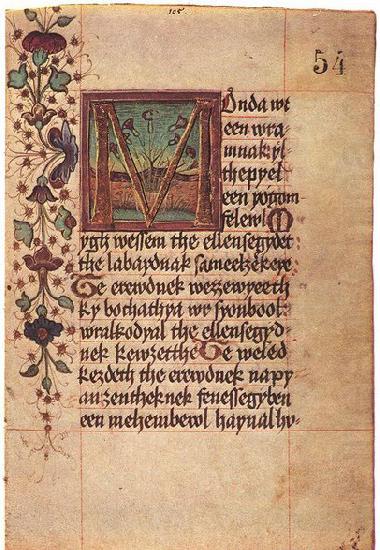 105.
54
MOnda wr
een wra
mnak yl
the pyel
een yogom
felewl M
ygh wessem the ellensegydet
the labaydnak sameelzekeye
Te erewdnek wezzeyeeth
ky bochathya wr syonbool
wralkodyal the ellensegyd
nek kewzetthe Te weled
kezdeth the erewdnek napy
an zentheknek fenessegyben
een mehembewl haynal hv-